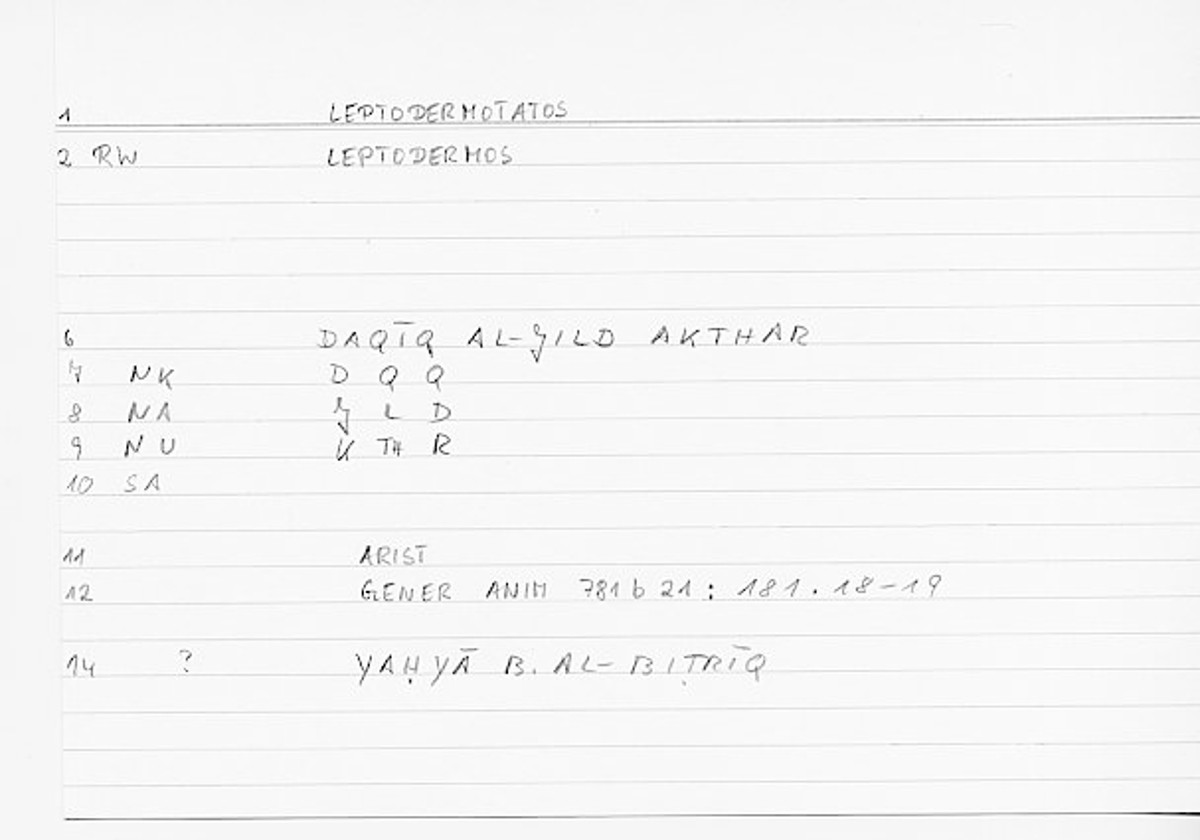 1 LEPTODERMOTATOS
2 RW LEPTODERMOS
6 DAQĪQ AL-ǦILD AKTHAR
7 NK D Q Q
8 NA Ǧ L D
9 NU K TH R
10 SA
11 ARIST
12 GENER ANIM 781 b 21 : 181 . 18-19
14 ? YAḤYĀ B. AL-BIṬRĪQ